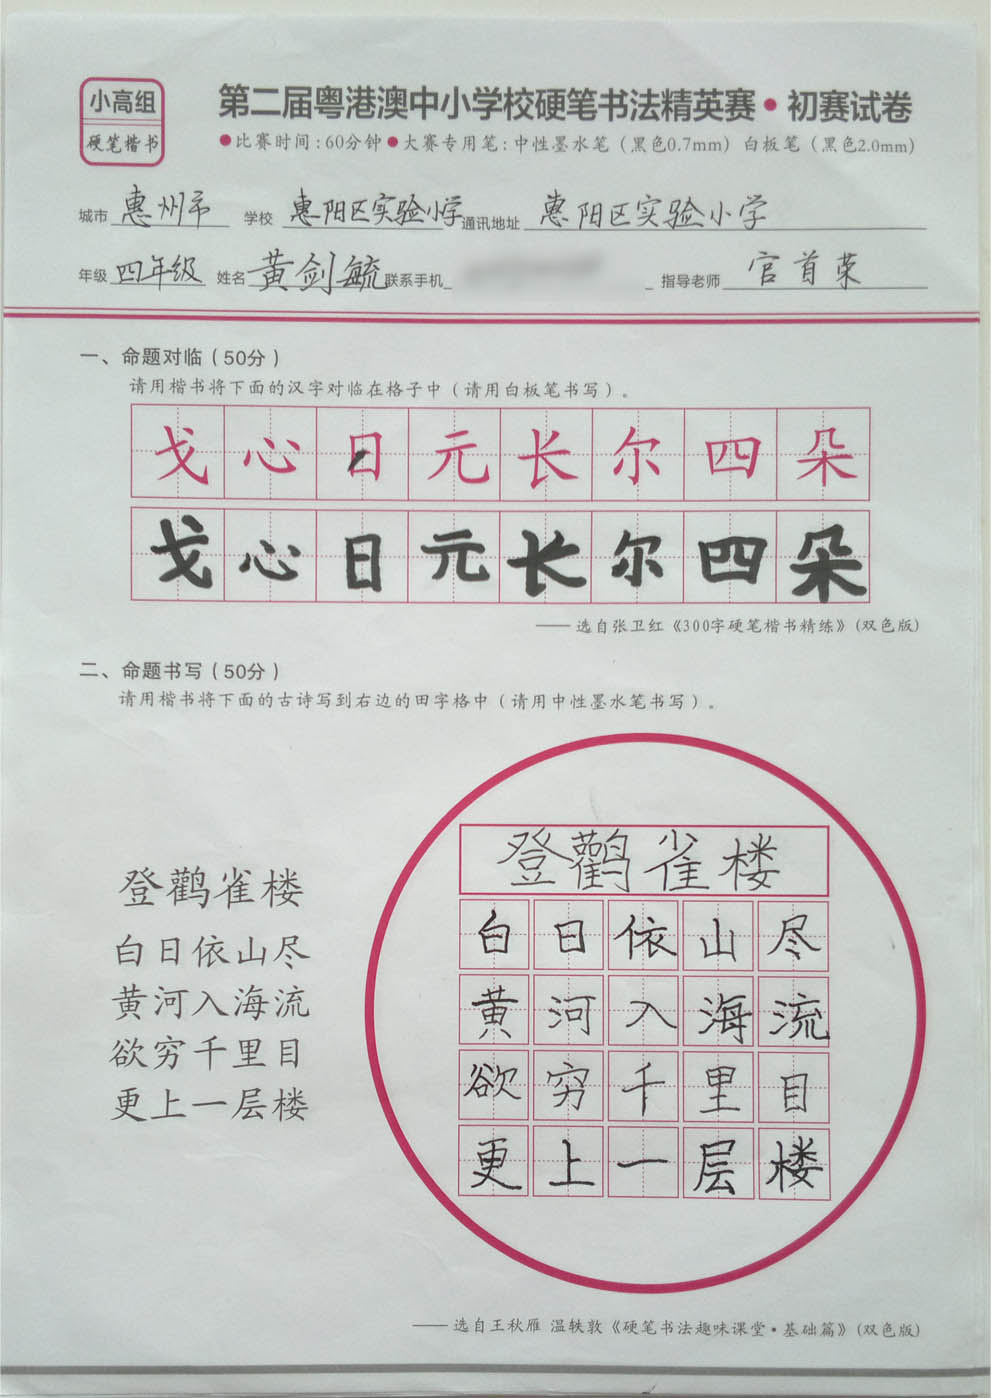 小高组
硬笔楷书
第二届粤港澳中小学校硬笔书法精英赛·初赛试卷
●比赛时间:60分钟●大赛专用笔:中性墨水笔（黑色0.7mm）白板笔（黑色2.0mm）
城市 惠州市 学校 惠阳区实验小学 通讯地址 惠阳区实验小学
年级 四年级 姓名 黄剑毓 联系手机 指导老师 官首荣
一、命题对临（50分）
请用楷书将下面的汉字对临在格子中（请用白板笔书写）。
戈心日元长尔四朵
戈心日元长尔四朵
——选自张卫红《300字硬笔楷书精练》(双色版)
二、命题书写（50分）
请用楷书将下面的古诗写到右边的田字格中（请用中性墨水笔书写）。
登鹳雀楼
白日依山尽
黄河入海流
欲穷千里目
更上一层楼
登鹳雀楼
白日依山尽
黄河入海流
欲穷千里目
更上一层楼
——选自王秋雁 温轶敦《硬笔书法趣味课堂·基础篇》(双色版)